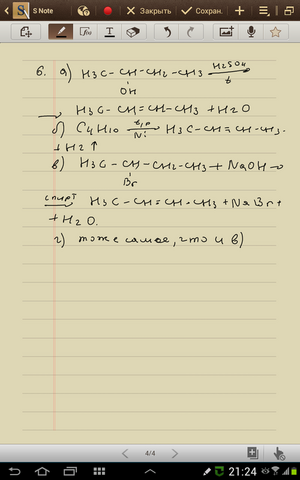 S Note
Закрыть
Сохран.
6. а) H3C - CH - CH2 - CH3 H2SO4
t
OH
H3C - CH = CH - CH3 + H2O
б) C4H10 t, p H3C - CH = CH - CH3
Ni
+ H2 ↑
в) H3C - CH - CH2 - CH3 + NaOH →
Br
спирт H3C - CH = CH - CH3 + NaBr +
+ H2O.
г) тоже самое, что и в)
4/4
21:24